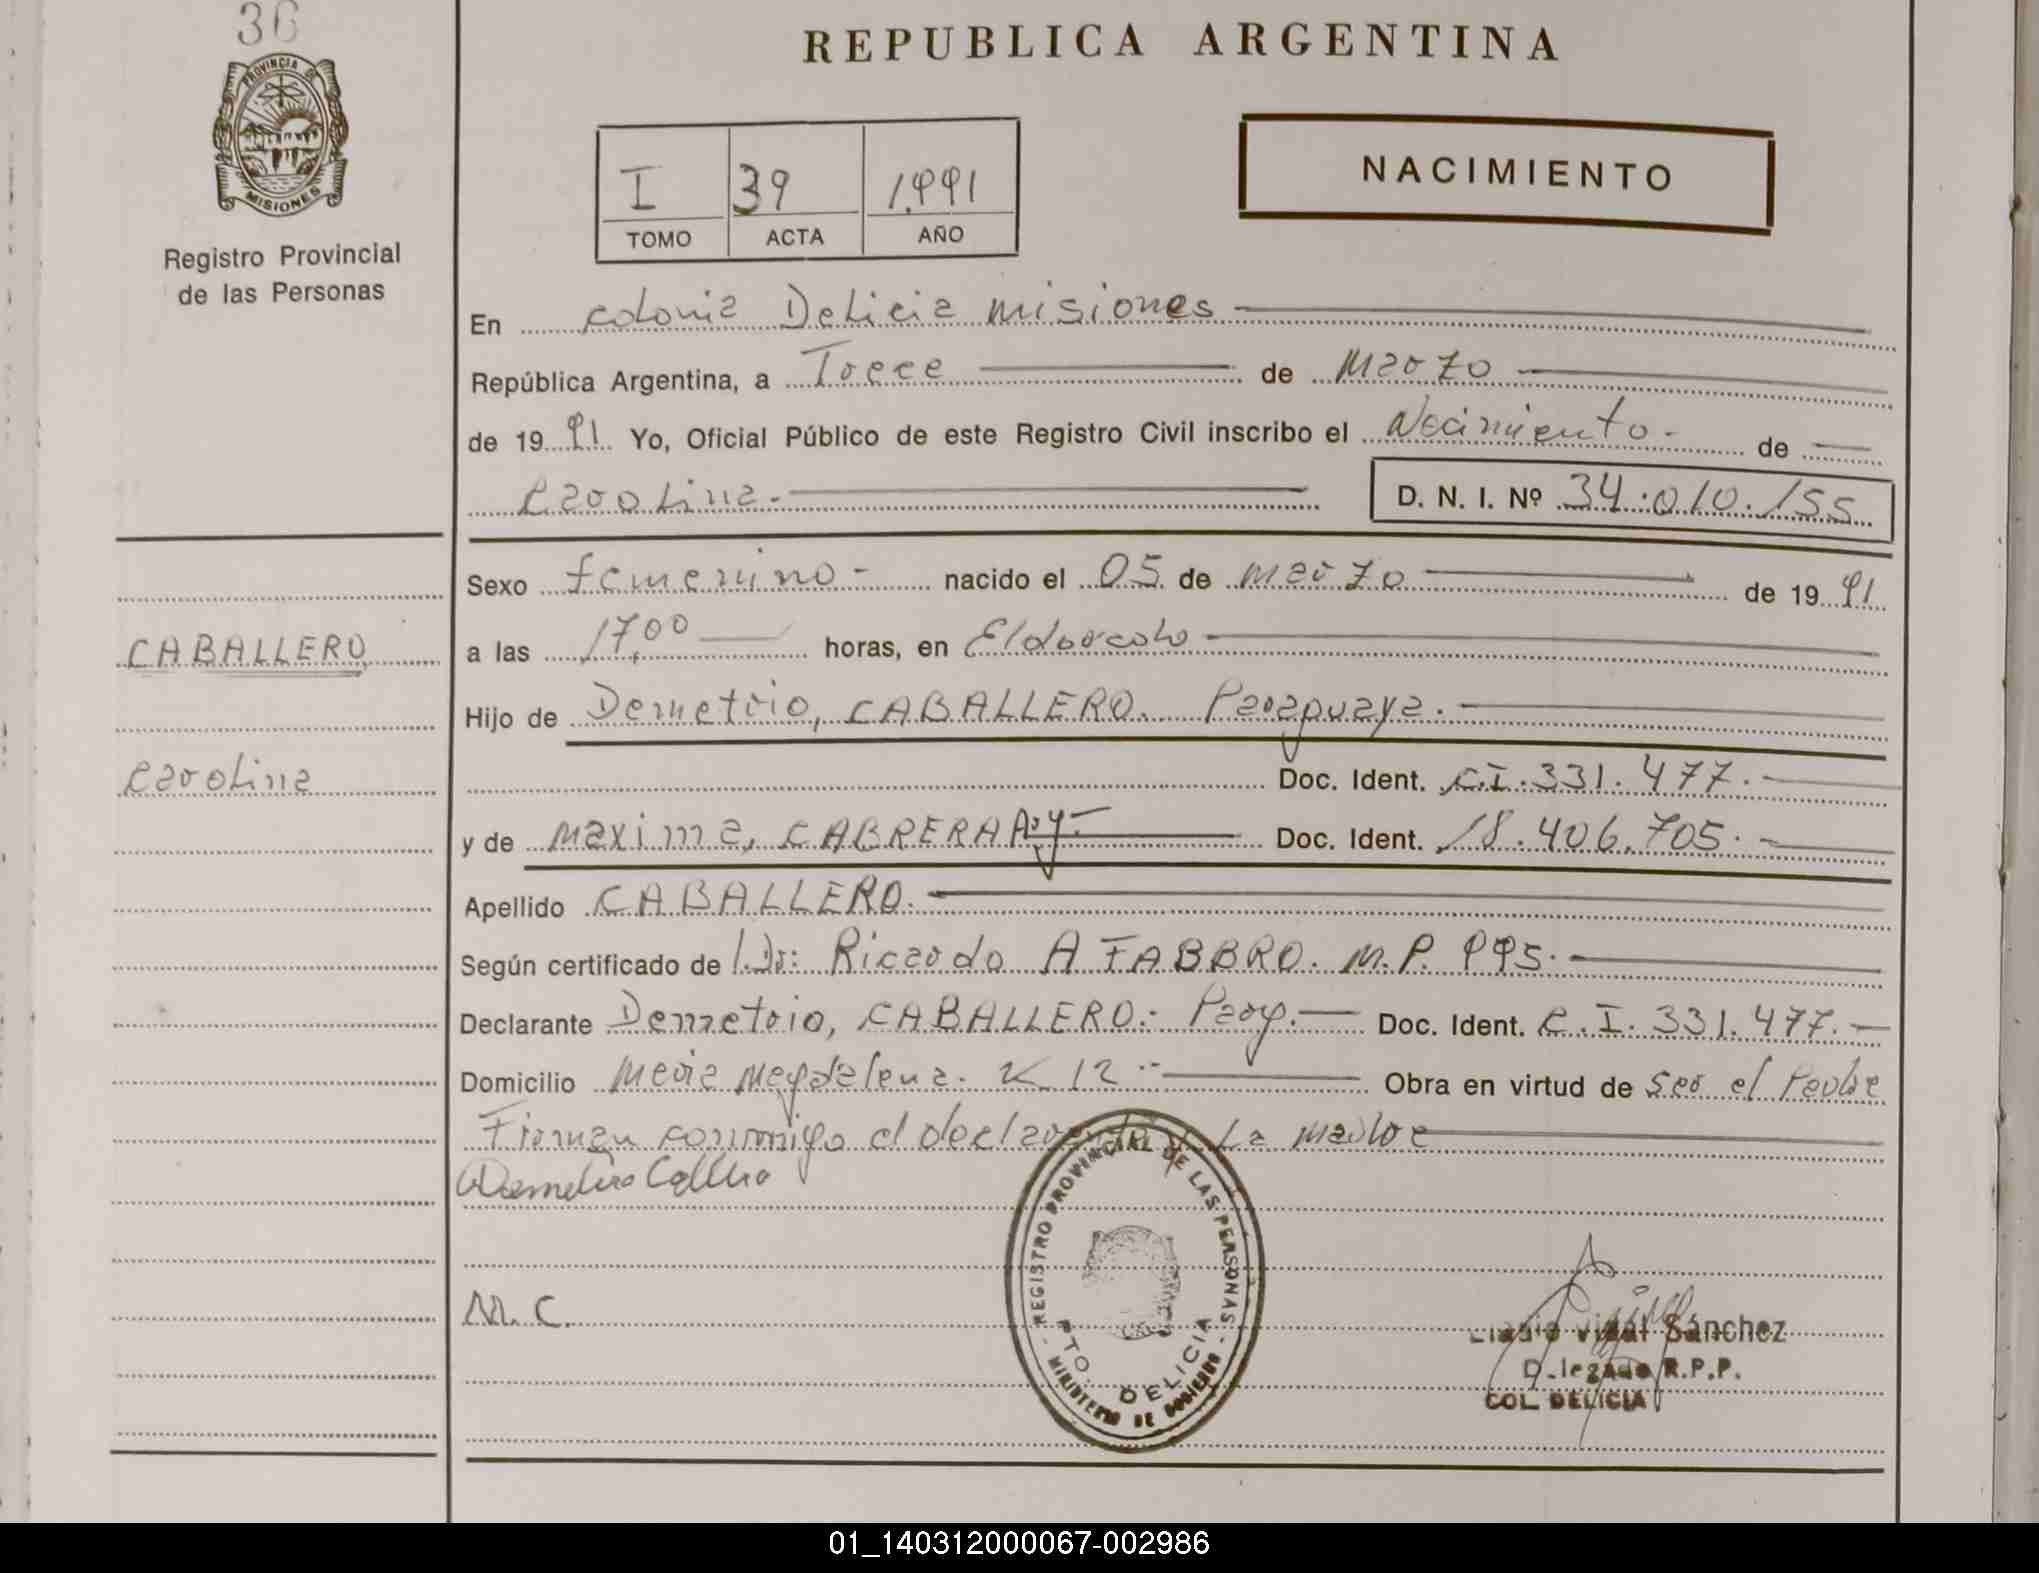 36
PROVINCIA DE
MISIONES
Registro Provincial
de las Personas
CABALLERO
Carolina
REPUBLICA ARGENTINA
I 39 1.991
TOMO ACTA AÑO
NACIMIENTO
En Colonia Delicia Misiones
República Argentina, a Trece de Marzo
de 19 91 Yo, Oficial Público de este Registro Civil inscribo el Nacimiento.- de
Carolina.- D. N. I. Nº 34.010.155
Sexo femenino - nacido el 05 de marzo de 19 91
a las 17,00 horas, en Eldorado
Hijo de Demetrio, CABALLERO. Paraguaya.
Doc. Ident. C.I. 331.477.-
y de Maxima, CABRERA Arg.- Doc. Ident. 18.406.705.-
Apellido CABALLERO.
Según certificado de Dr: Ricardo A FABBRO. M.P. 995.
Declarante Demetrio, CABALLERO.- Parg.- Doc. Ident. C.I. 331.477.-
Domicilio Maria Magdalena. K 12.- Obra en virtud de ser el Padre
Firman conmigo el declarante y La madre
M. C.
REGISTRO PROVINCIAL DE LAS PERSONAS
PTO. DELICIA
MINISTERIO DE GOBIERNO
Vidal Sánchez
Delegado R.P.P.
COL. DELICIA
01_140312000067-002986